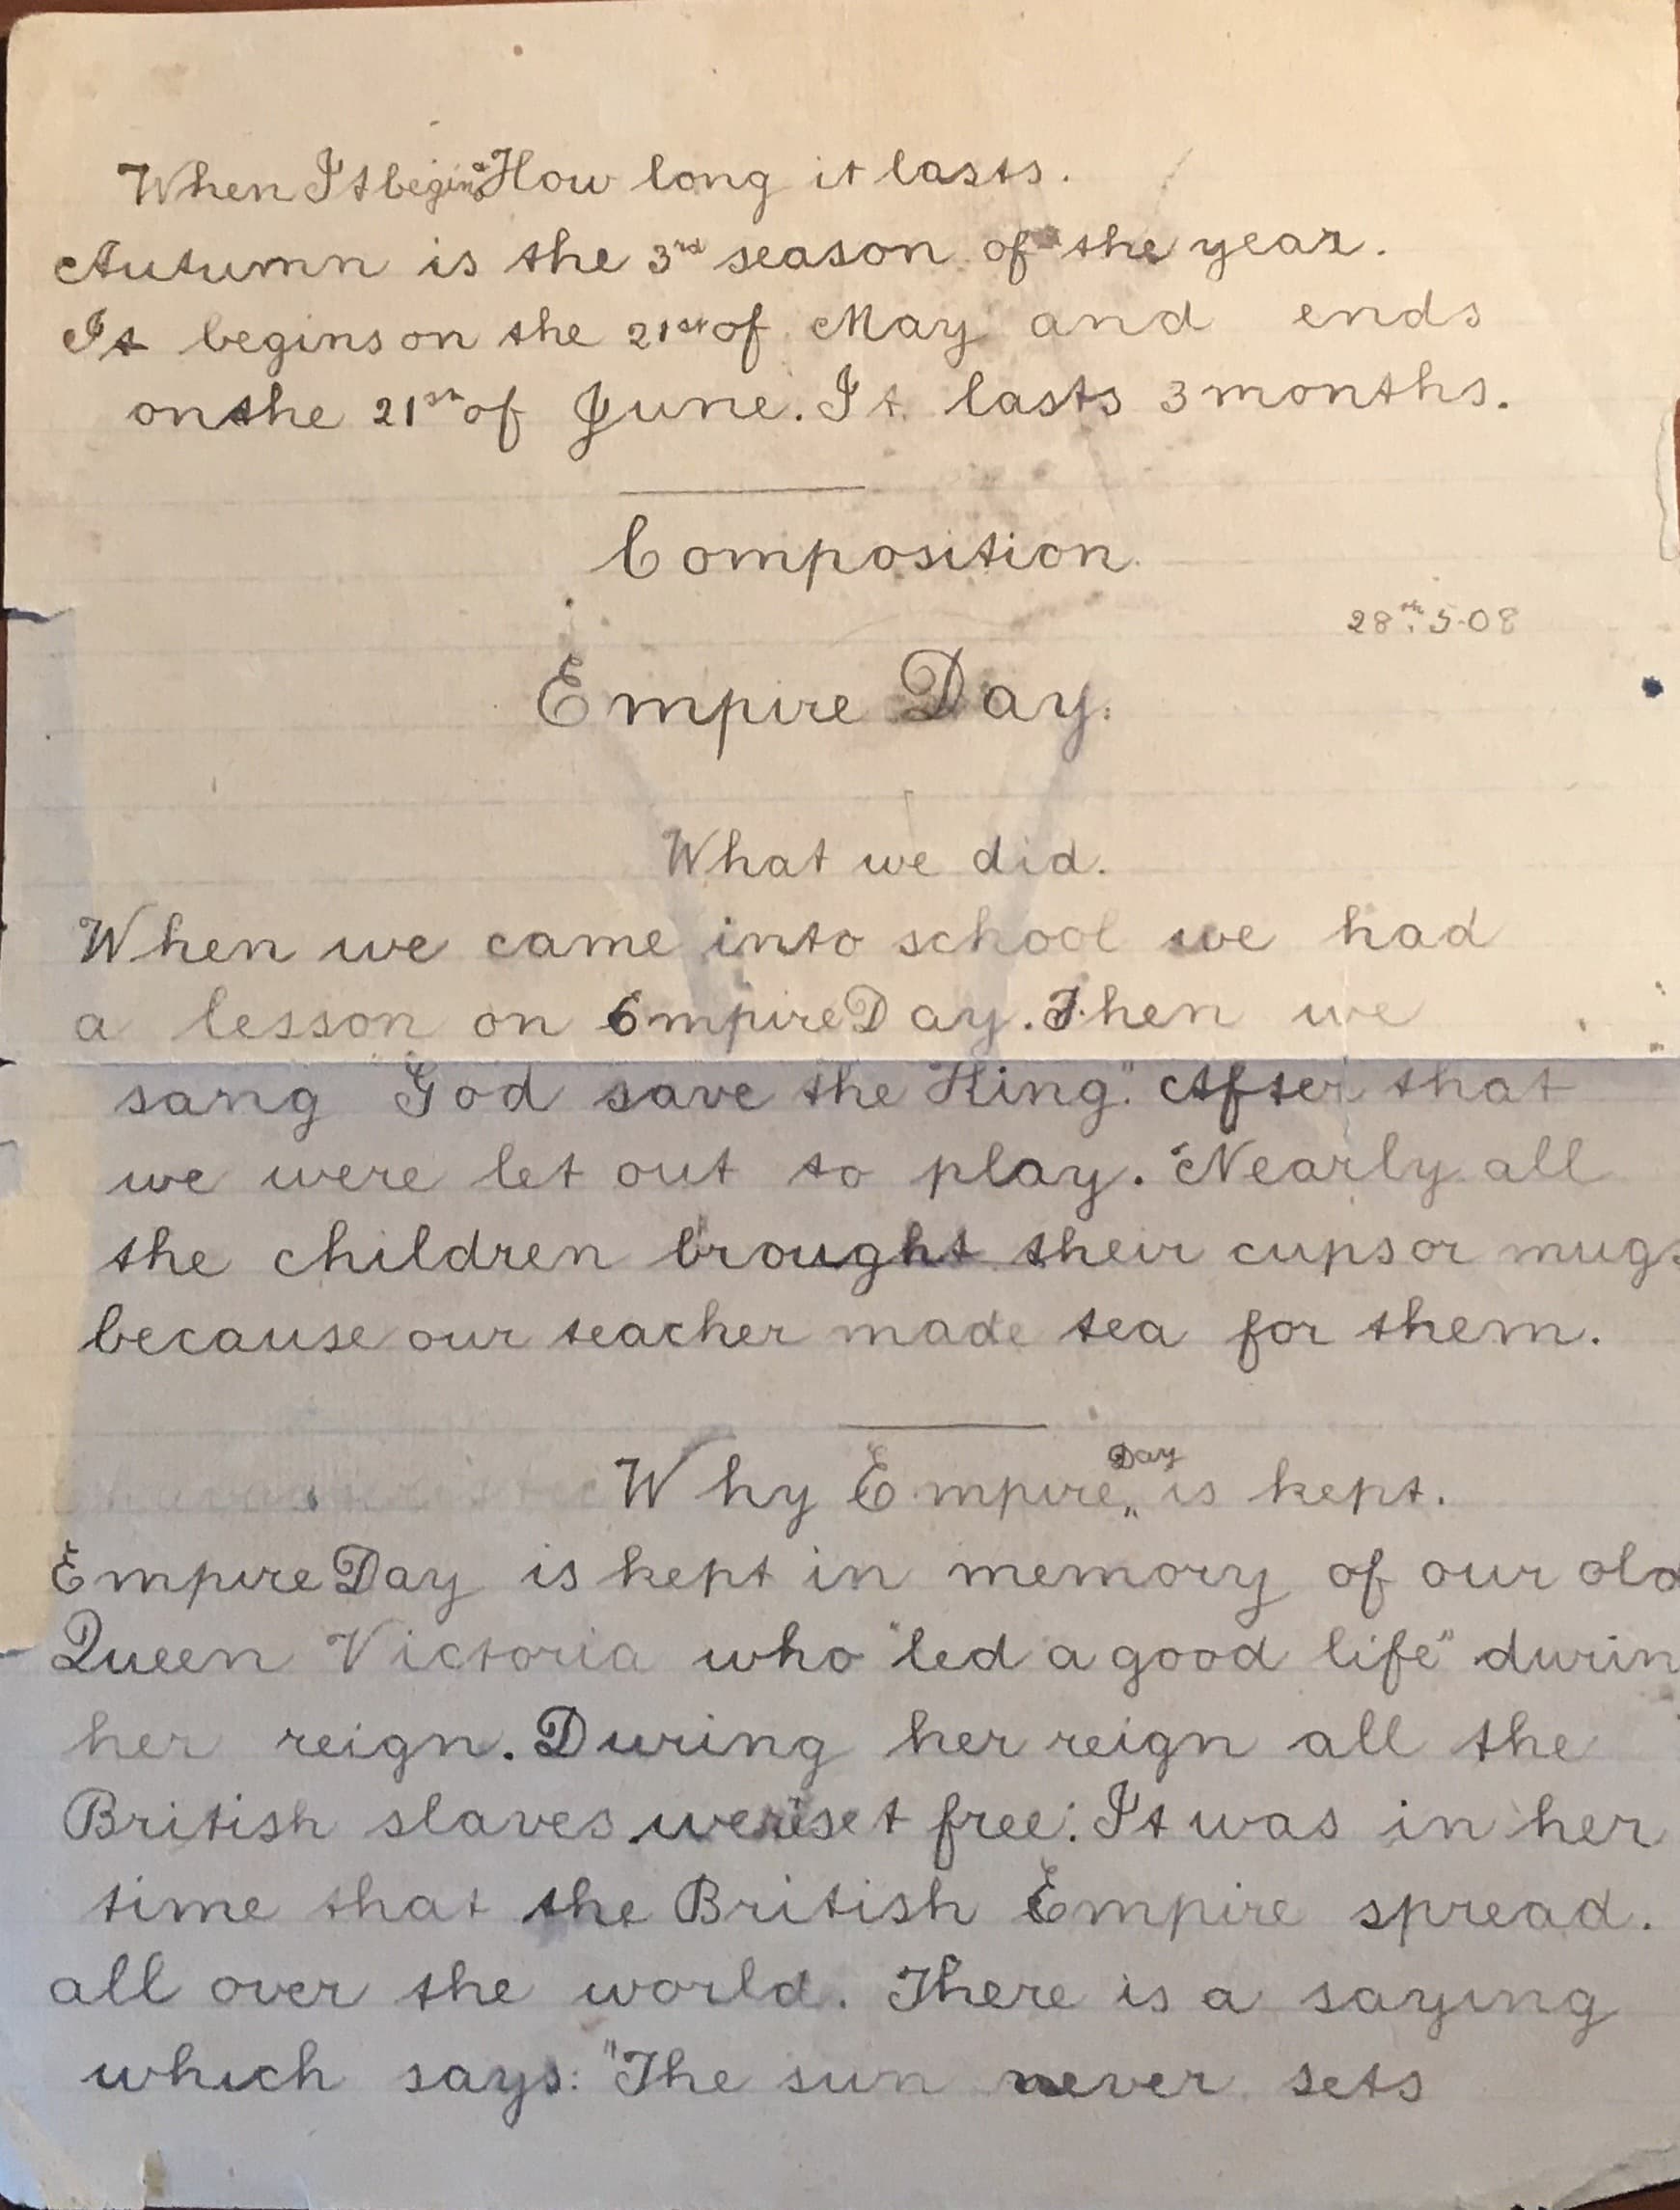 When It begins & How long it lasts.
Autumn is the 3rd season of the year.
It begins on the 21st of May and ends
on the 21st of June. It lasts 3 months.
Composition.
28th. 5-08
Empire Day.
What we did.
When we came into school we had
a lesson on Empire Day. Then we
sang "God save the King." After that
we were let out to play. Nearly all
the children brought their cups or mugs
because our teacher made tea for them.
Day
Why Empire„ is kept.
Empire Day is kept in memory of our old
Queen Victoria who "led a good life" durin
her reign. During her reign all the
British slaves were set free. It was in her
time that the British Empire spread.
all over the world. There is a saying
which says: "The sun never sets